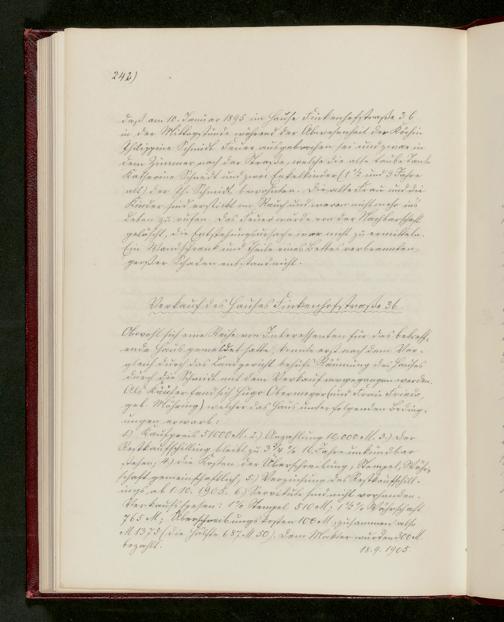 242)
daß am 10. Januar 1895 im Hause Finkenhofstraße 36
in der Mittagstunde während der Abwesenheit der Köchin
Philippine Schmidt Feuer ausgebrochen sei und zwar in
dem Zimmer nach der Straße, welche die alte taube Tante
Katharina Schmidt und zwei Enkelkinder (1½ und 3 Jahre
alt) der Ph. Schmidt bewohnten. Die alte Frau und die
Kinder sind erstickt im Rauch und waren nicht mehr ins
Leben zu rufen. Das Feuer wurde von der Nachbarschaft
gelöscht, die Entstehungsursache war nicht zu ermitteln.
Ein Wandschrank und Teile eines Bettes verbrannten,
großer Schaden entstand nicht.
Verkauf des Hauses Finkenhofstraße 36.
Obwohl sich eine Reihe von Interessenten für das betreff-
ende Haus gemeldet hatte, konnte erst nach dem Ver-
gleich durch das Landgericht behufs Räumung des Hauses
durch die Schmidt mit dem Verkauf vorgegangen werden.
Als Käufer fand sich Hugo Obermeyer (und Frau
geb. Möhring) welcher das Haus unter folgenden Beding-
ungen erwarb:
1) Kaufpreis 51000 M. 2) Anzahlung 10,000 M. 3) Der
Restkaufschilling bleibt zu 3¾ % 10 Jahre unkündbar
stehen; 4) die Kosten der Überschreibung, Stempel, Währ-
schaft gemeinschaftlich; 5) Verzinsung des Restkaufschill-
ings ab 1.10.1905. 6) Servitute sind nicht vorhanden.
Verkaufsspesen: 1% Stempel 510 M; 1½ % Währschaft
765 M; Überschreibungskosten 100 M, zusammen also
M 1375 (die Hälfte 687 M 50). Dem Makler wurden 500 M
bezahlt. 18.9.1905